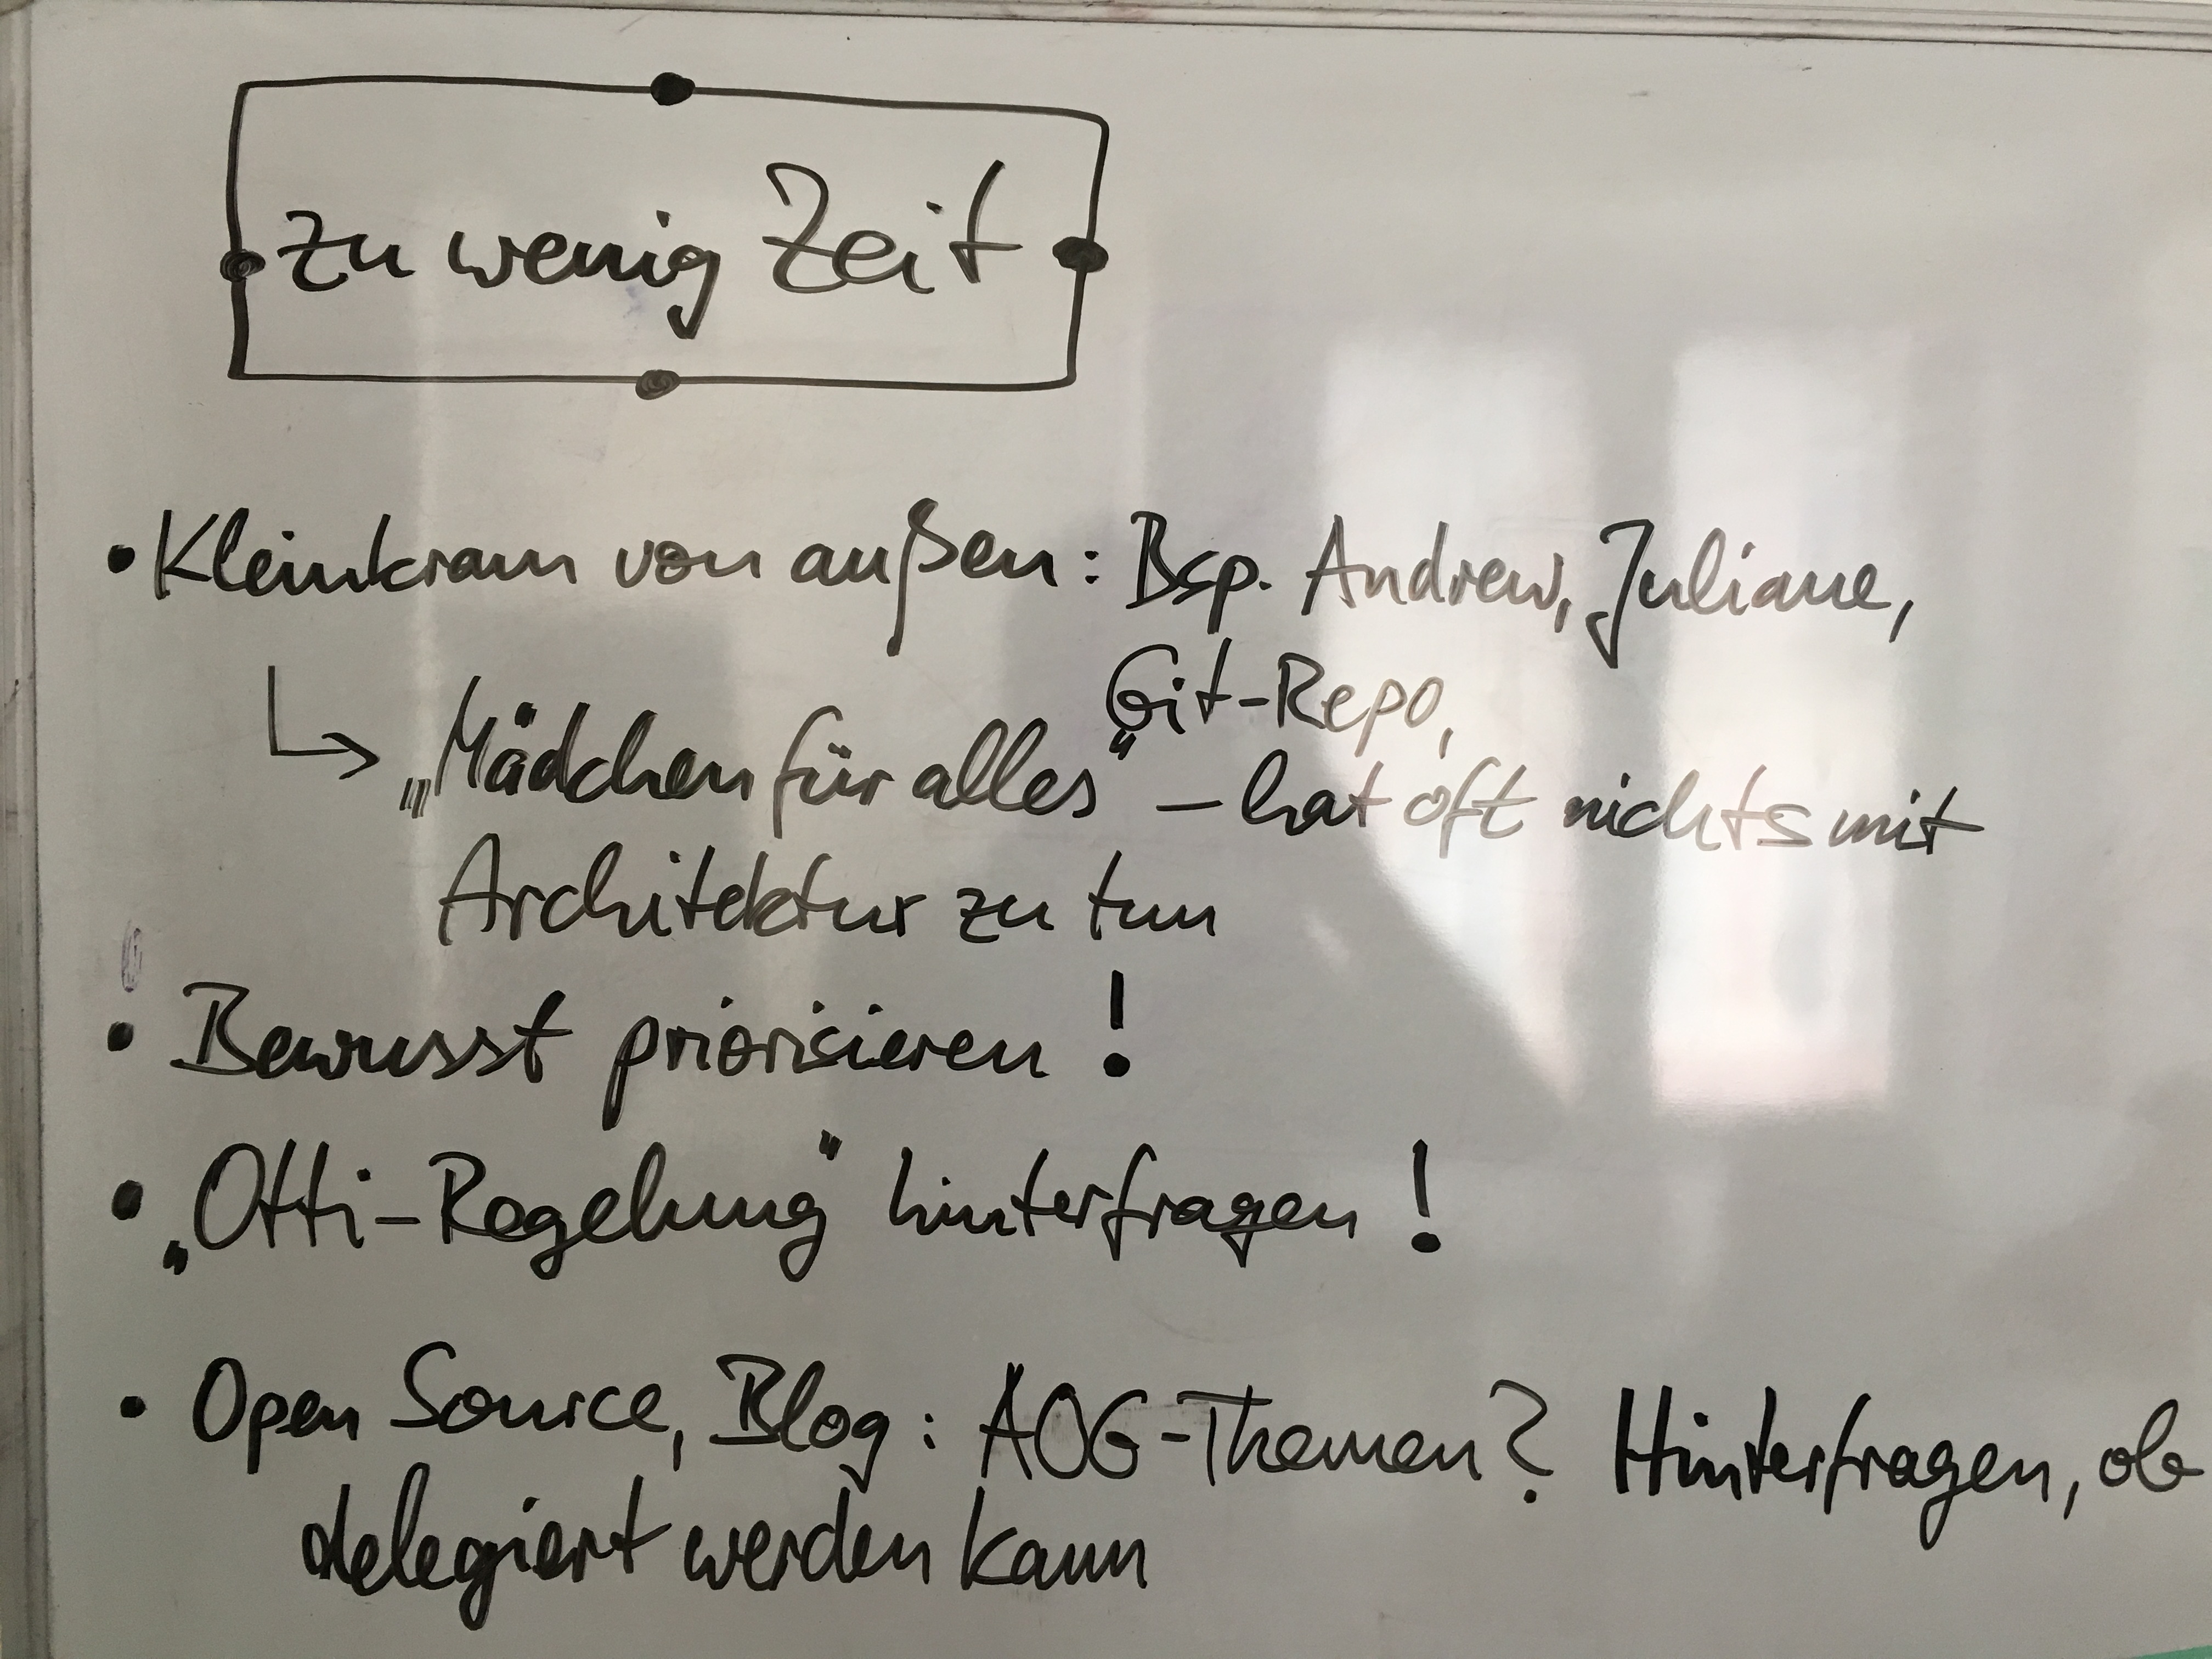 zu wenig Zeit
• Kleinkram von außen: Bsp. Andrew, Juliane,
Git-Repo,
↳ „Mädchen für alles" – hat oft nichts mit
Architektur zu tun
• Bewusst priorisieren!
• „Otti-Regelung" hinterfragen!
• Open Source, Blog: AOG-Themen? Hinterfragen, ob
delegiert werden kann